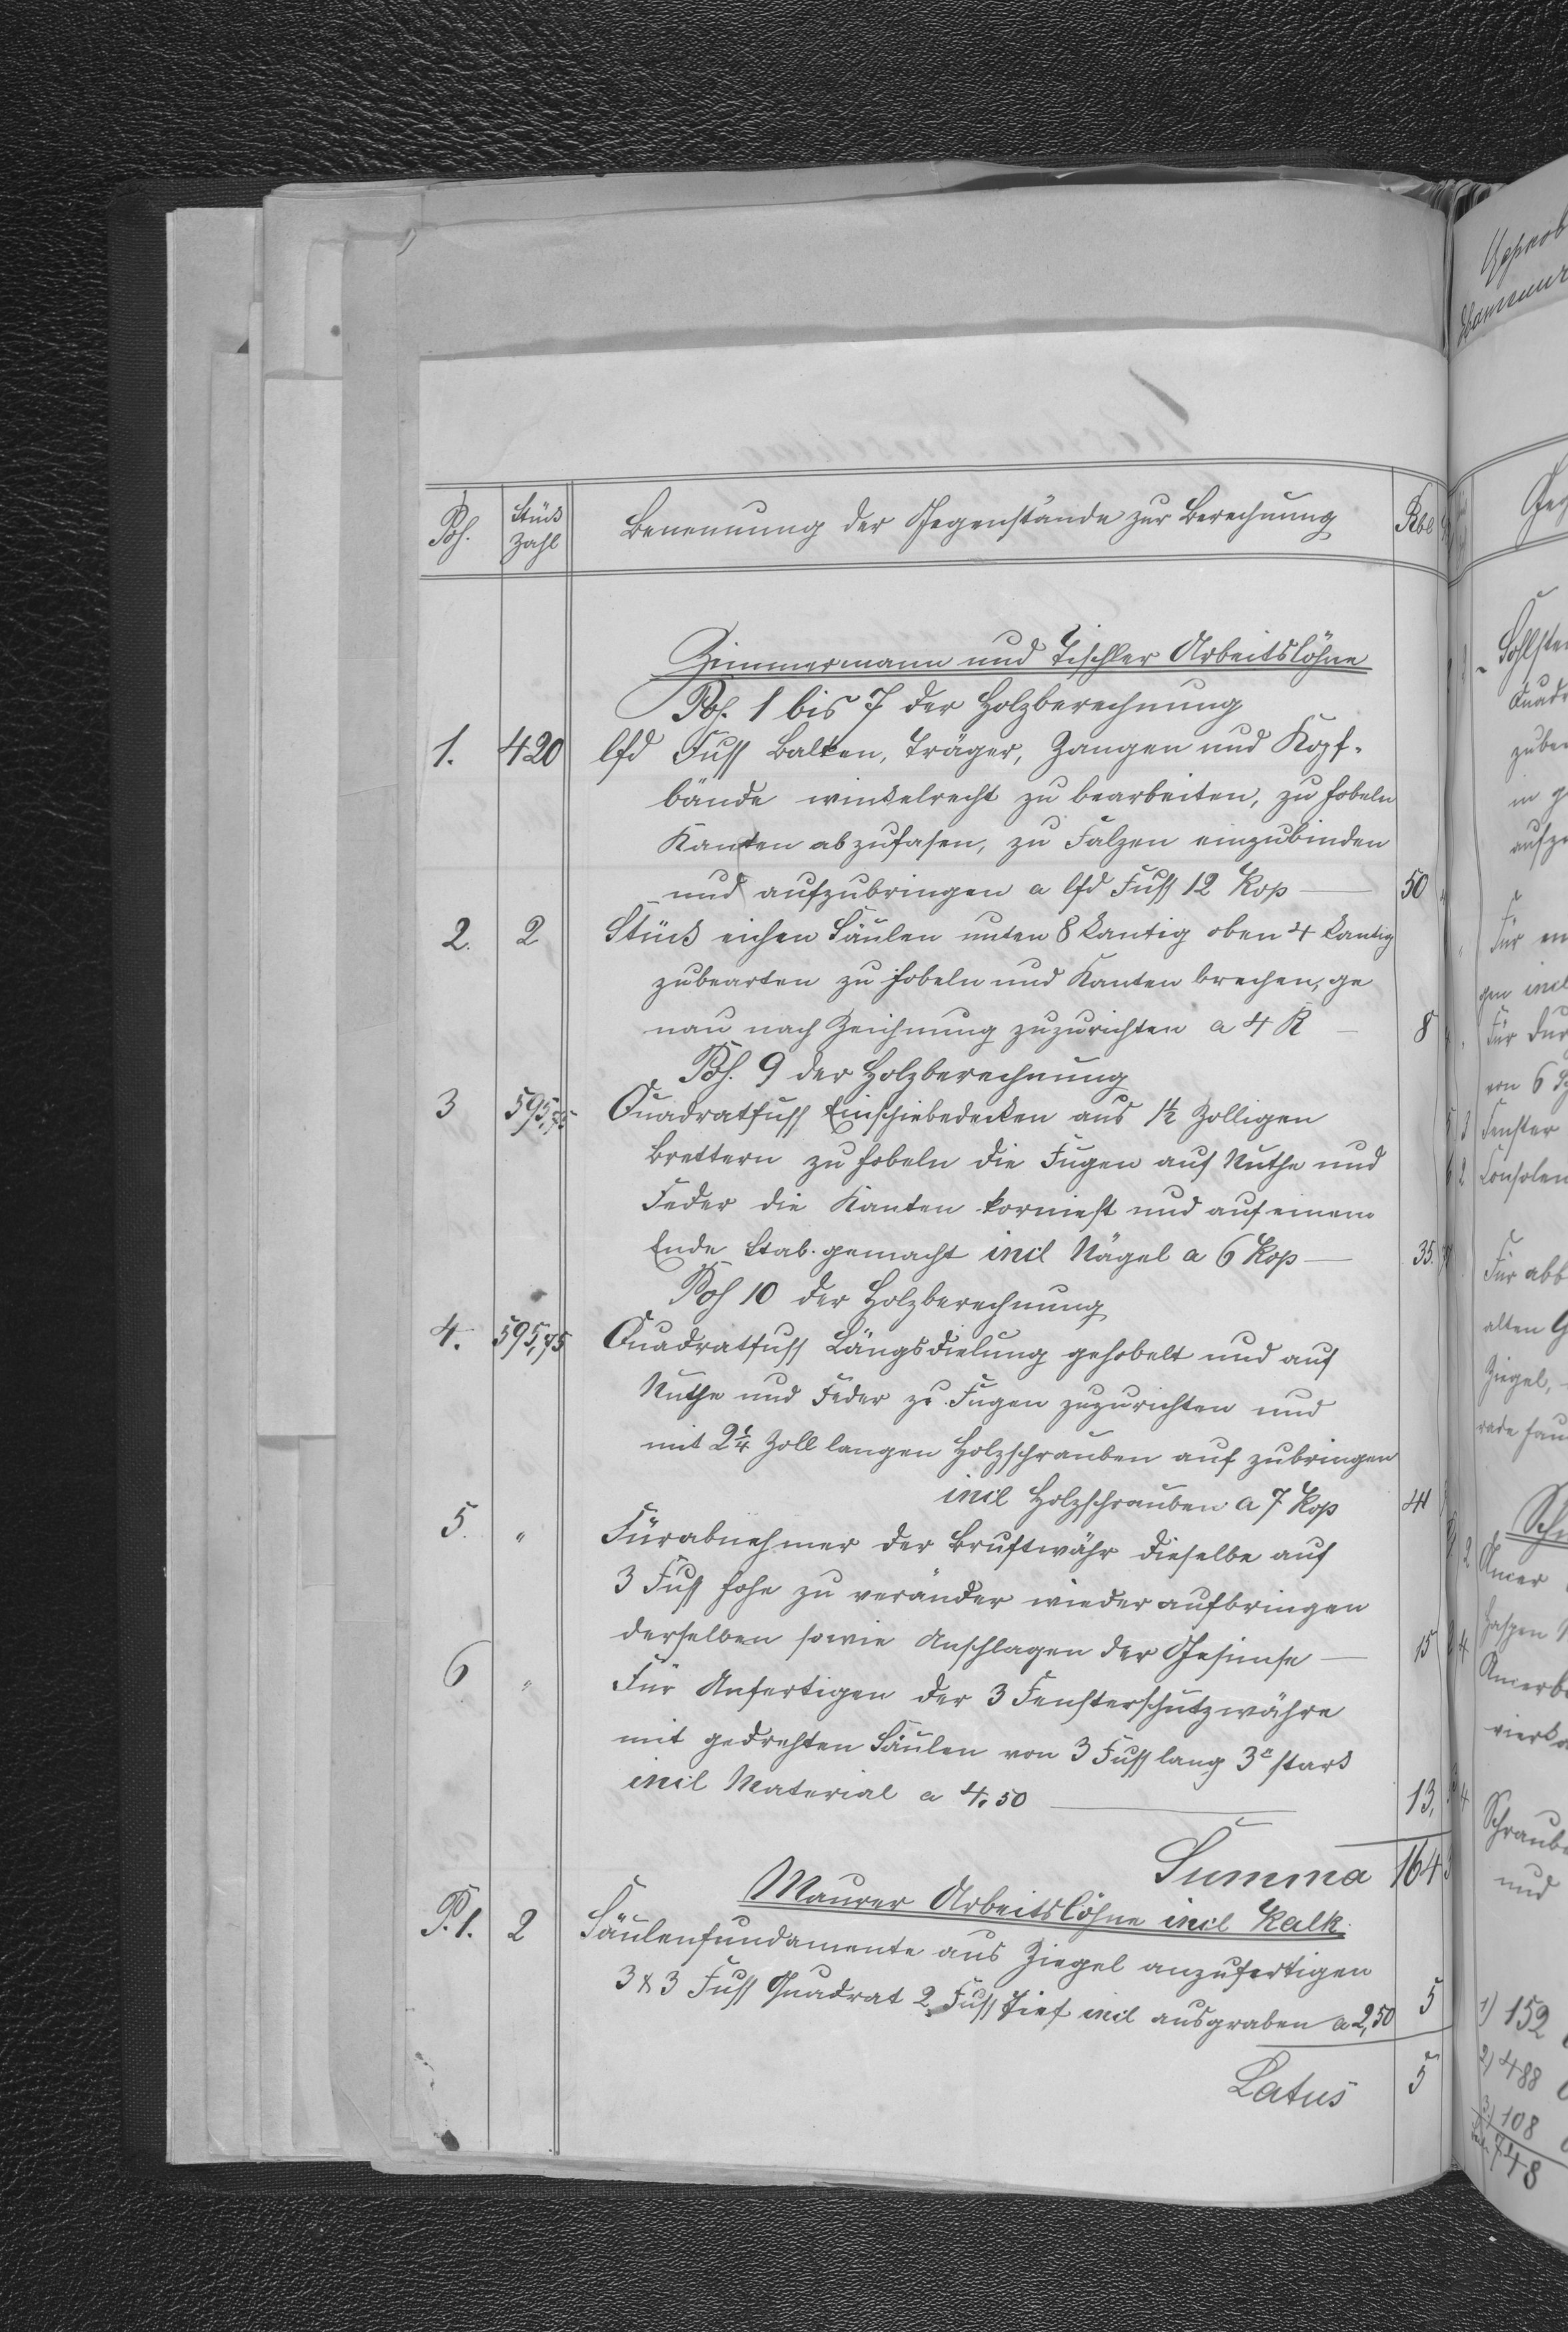 Pos. Stück Zahl Benennung der Gegenstände zur Berechnung Rbl
Zimmermann und Tischler Arbeitslöhne
Pos. 1 bis 7 der Holzberechnung
1. 420 lfd Fuss Balken, Träger, Zangen und Kopf-
bände winkelrecht zu bearbeiten, zu hobeln
Kanten abzufasen, zu Falzen einzubinden
und aufzubringen a lfd Fuss 12 Kop — 50
2. 2 Stück eichen Säulen unten 8 kantig oben 4 kantig
zubearten zu hobeln und Kanten brechen, ge
nau nach Zeichnung zuzurichten a 4 R — 8
Pos. 9 der Holzberechnung
3 595,75 Quadratfuss Einschiebedecken aus 1½ Zolligen
Brettern zu hobeln die Fugen auf Nuthe und
Feder die Kanten korniest und auf einem
Ende Stab. gemacht incl Nägel a 6 Kop — 35.
Pos 10 der Holzberechnung
4. 595,75 Quadratfuss Längsdielung gehobelt und auf
Nuthe und Feder zu Fugen zuzurichten und
mit 2¼ Zoll langen Holzschrauben auf zubringen
incl Holzschrauben a 7 Kop 41
5. " Fürabnehmer der Brustwähr dieselbe auf
3 Fuss hohe zu veränder wieder aufbringen
derselben sowie Anschlagen der Gesimse — 15
6 " Für Anfertigen der 3 Fensterschutzwähre
mit gedrehten Säulen von 3 Fuss lang 3" stark
incl Material a 4.50 — 13,
Summa 164
Maurer Arbeitslöhne incl Kalk.
P. 1. 2 Säulenfundamente aus Ziegel anzufertigen
3 & 3 Fuss Quadrat 2 Fuss Tief incl ausgraben a 2,50 5
Latus 5
Für
gen incl
Für
von 6
Fenster
Consolen
Für abb
alten
Ziegel,
und
1) 152
2) 488
3) 108
748